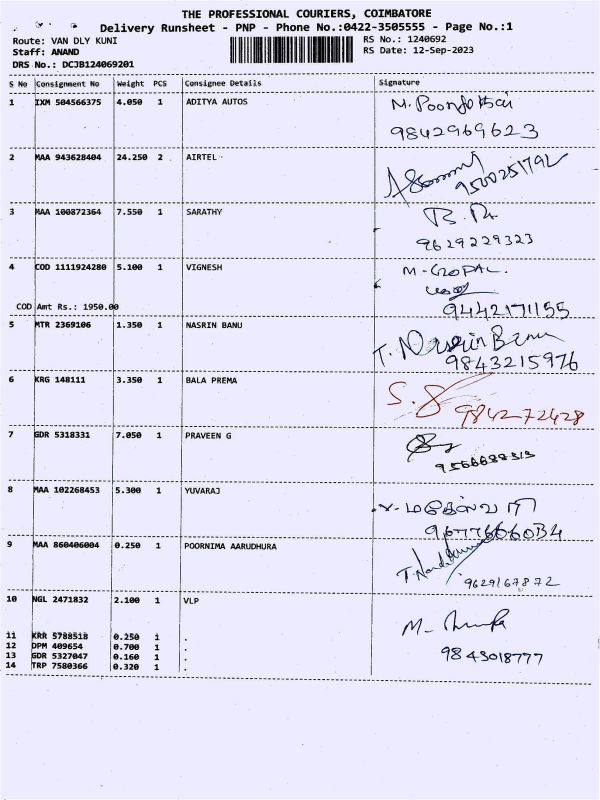 THE PROFESSIONAL COURIERS, COIMBATORE
Delivery Runsheet - PNP - Phone No.:0422-3505555 - Page No.:1
Route: VAN DLY KUNI RS No.: 1240692
Staff: ANAND RS Date: 12-Sep-2023
DRS No.: DCJB124069201
S No Consignment No Weight PCS Consignee Details Signature
1 IXM 504566375 4.050 1 ADITYA AUTOS
9842969623
2 MAA 943628404 24.250 2 AIRTEL
9500251792
3 MAA 100872364 7.550 1 SARATHY
9629229323
4 COD 1111924280 5.100 1 VIGNESH M-GOPAL.
COD Amt Rs.: 1950.00 9442171155
5 MTR 2369106 1.350 1 NASRIN BANU T. Nasrin Banu
9843215976
6 KRG 148111 3.350 1 BALA PREMA
9842272428
7 GDR 5318331 7.050 1 PRAVEEN G
8 MAA 102268453 5.300 1 YUVARAJ
9 MAA 860406004 0.250 1 POORNIMA AARUDHURA
9629167872
10 NGL 2471832 2.100 1 VLP
9843018777
11 KRR 5788518 0.250 1 .
12 DPM 409654 0.700 1 .
13 GDR 5327047 0.160 1 .
14 TRP 7580366 0.320 1 .